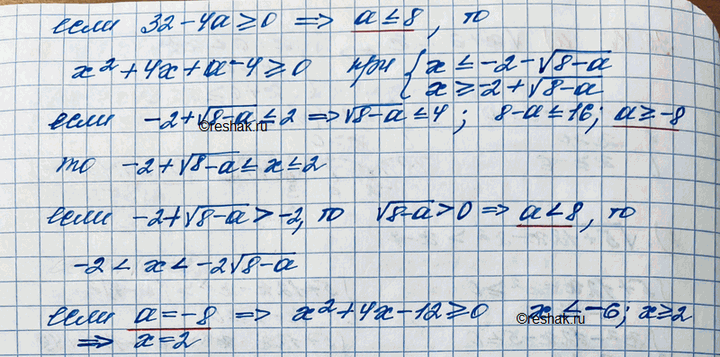 если 32-4a≥0 ⇒ a≤8, то
x²+4x+a-4≥0 при { x≤-2-√8-a
x≥-2+√8-a
если -2+√8-a≤2⇒√8-a≤4; 8-a≤16; a≥-8
©reshak.ru
то -2+√8-a≤x≤2
если -2+√8-a>-2, то √8-a>0 ⇒ a<8, то
-2<x<-2√8-a
если a=-8 ⇒ x²+4x-12≥0 x≤-6; x≥2
©reshak.ru
⇒ x=2